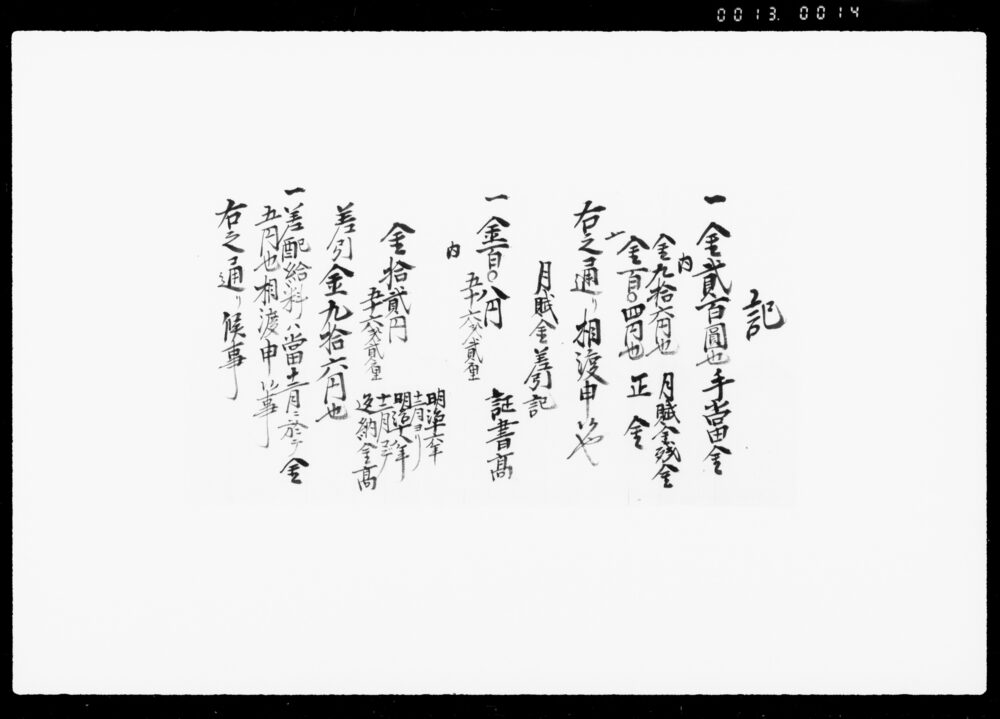 0013. 0014
記
一金貳百圓也手當金
内
金九拾六円也 月賦金残金
〆金百〇四円也 正金
右之通リ相渡申候也
月賦金差引記
一金百〇八円 証書高
五十六戋貳厘
内
金拾貳円
五十六戋貳厘
明治十六年
十一月ヨリ
明治十八年
十一月迄
返納金高
差引金九拾六円也
一差配給料ハ當十一月ニ於テ金
五円也相渡申候事
右之通リ候事